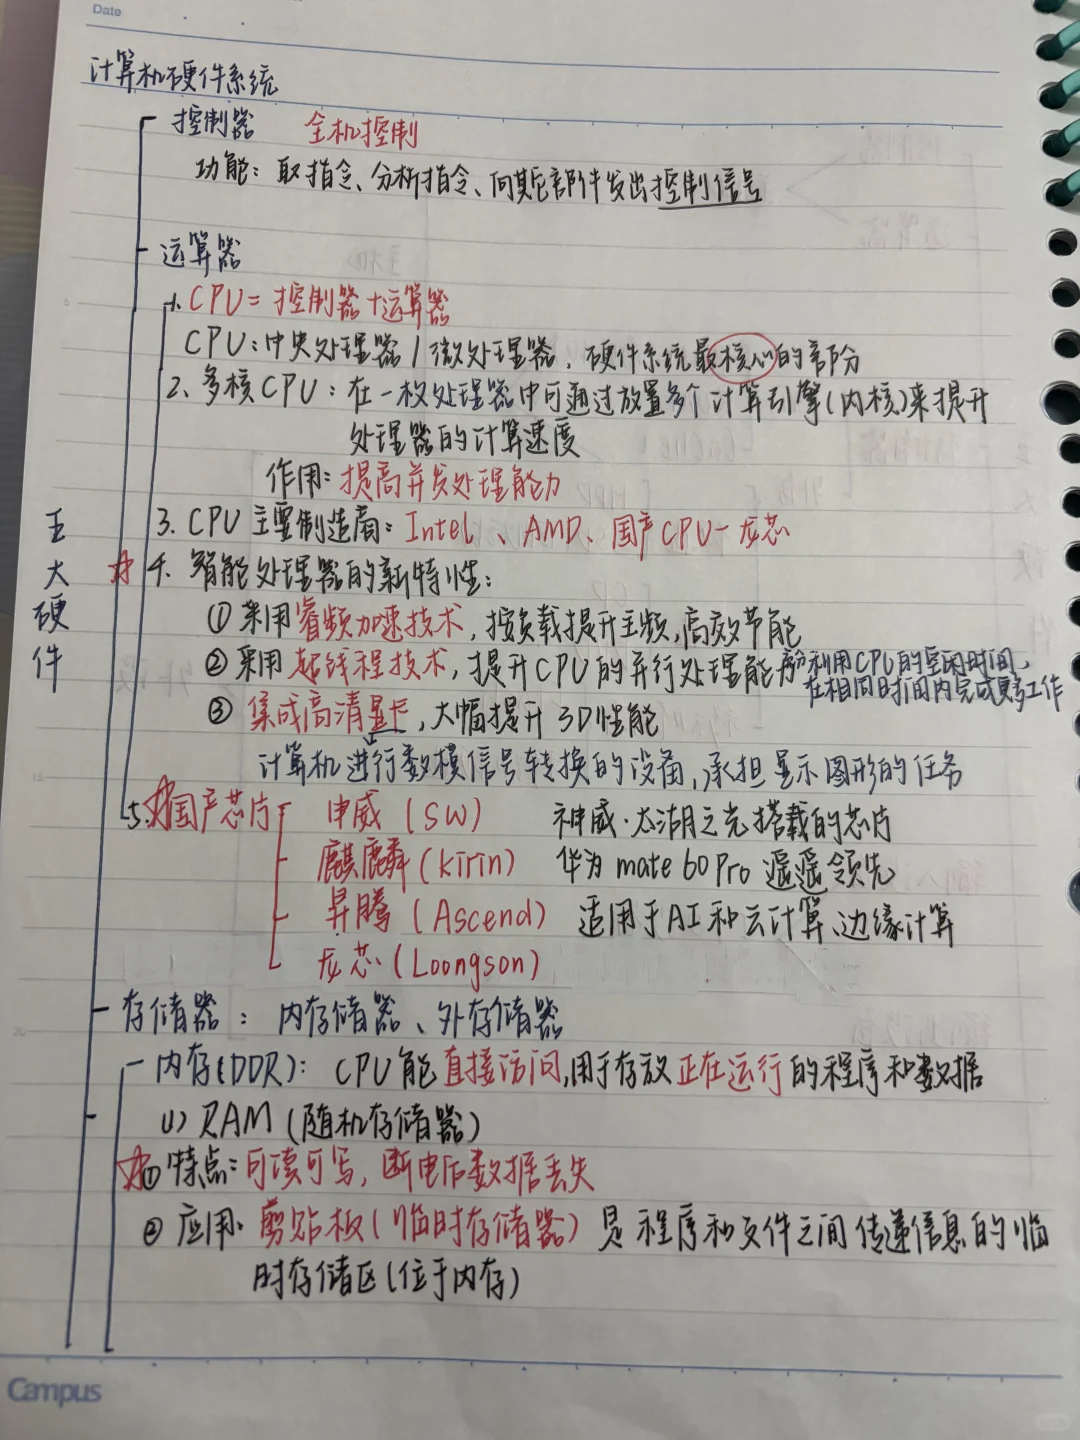 Date
计算机硬件系统
控制器 全机控制
功能：取指令、分析指令、向其它部件发出控制信号
运算器
1. CPU=控制器+运算器
CPU：中央处理器/微处理器，硬件系统最核心的部分
2、多核CPU：在一枚处理器中可通过放置多个计算引擎(内核)来提升
处理器的计算速度
作用：提高并发处理能力
3. CPU主要制造商：Intel、AMD、国产CPU-龙芯
4. 智能处理器的新特性：
①采用睿频加速技术，按负载提升主频，高效节能
②采用超线程技术，提升CPU的并行处理能力
充分利用CPU的空闲时间，
在相同时间内完成更多工作
③集成高清显卡，大幅提升3D性能
计算机进行数模信号转换的设备，承担显示图形的任务
5.国产芯片 申威(SW) 神威·太湖之光搭载的芯片
麒麟(Kirin) 华为mate60Pro遥遥领先
昇腾(Ascend) 适用于AI和云计算、边缘计算
龙芯(Loongson)
五大硬件
存储器：内存储器、外存储器
内存(DDR)：CPU能直接访问,用于存放正在运行的程序和数据
(1) RAM(随机存储器)
①特点：可读可写，断电后数据丢失
②应用：剪贴板(临时存储器)是程序和文件之间传递信息的临
时存储区(位于内存)
Campus